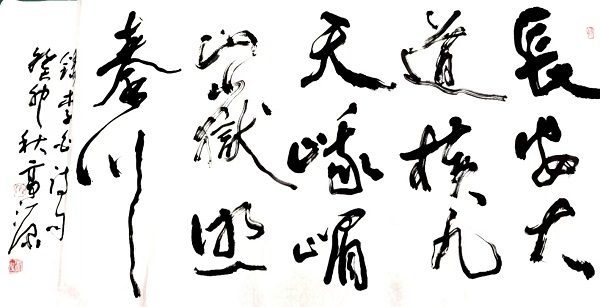 長安大
道橫九
天峨嵋
山嶽照
秦川
錄李白詩句
癸卯秋高